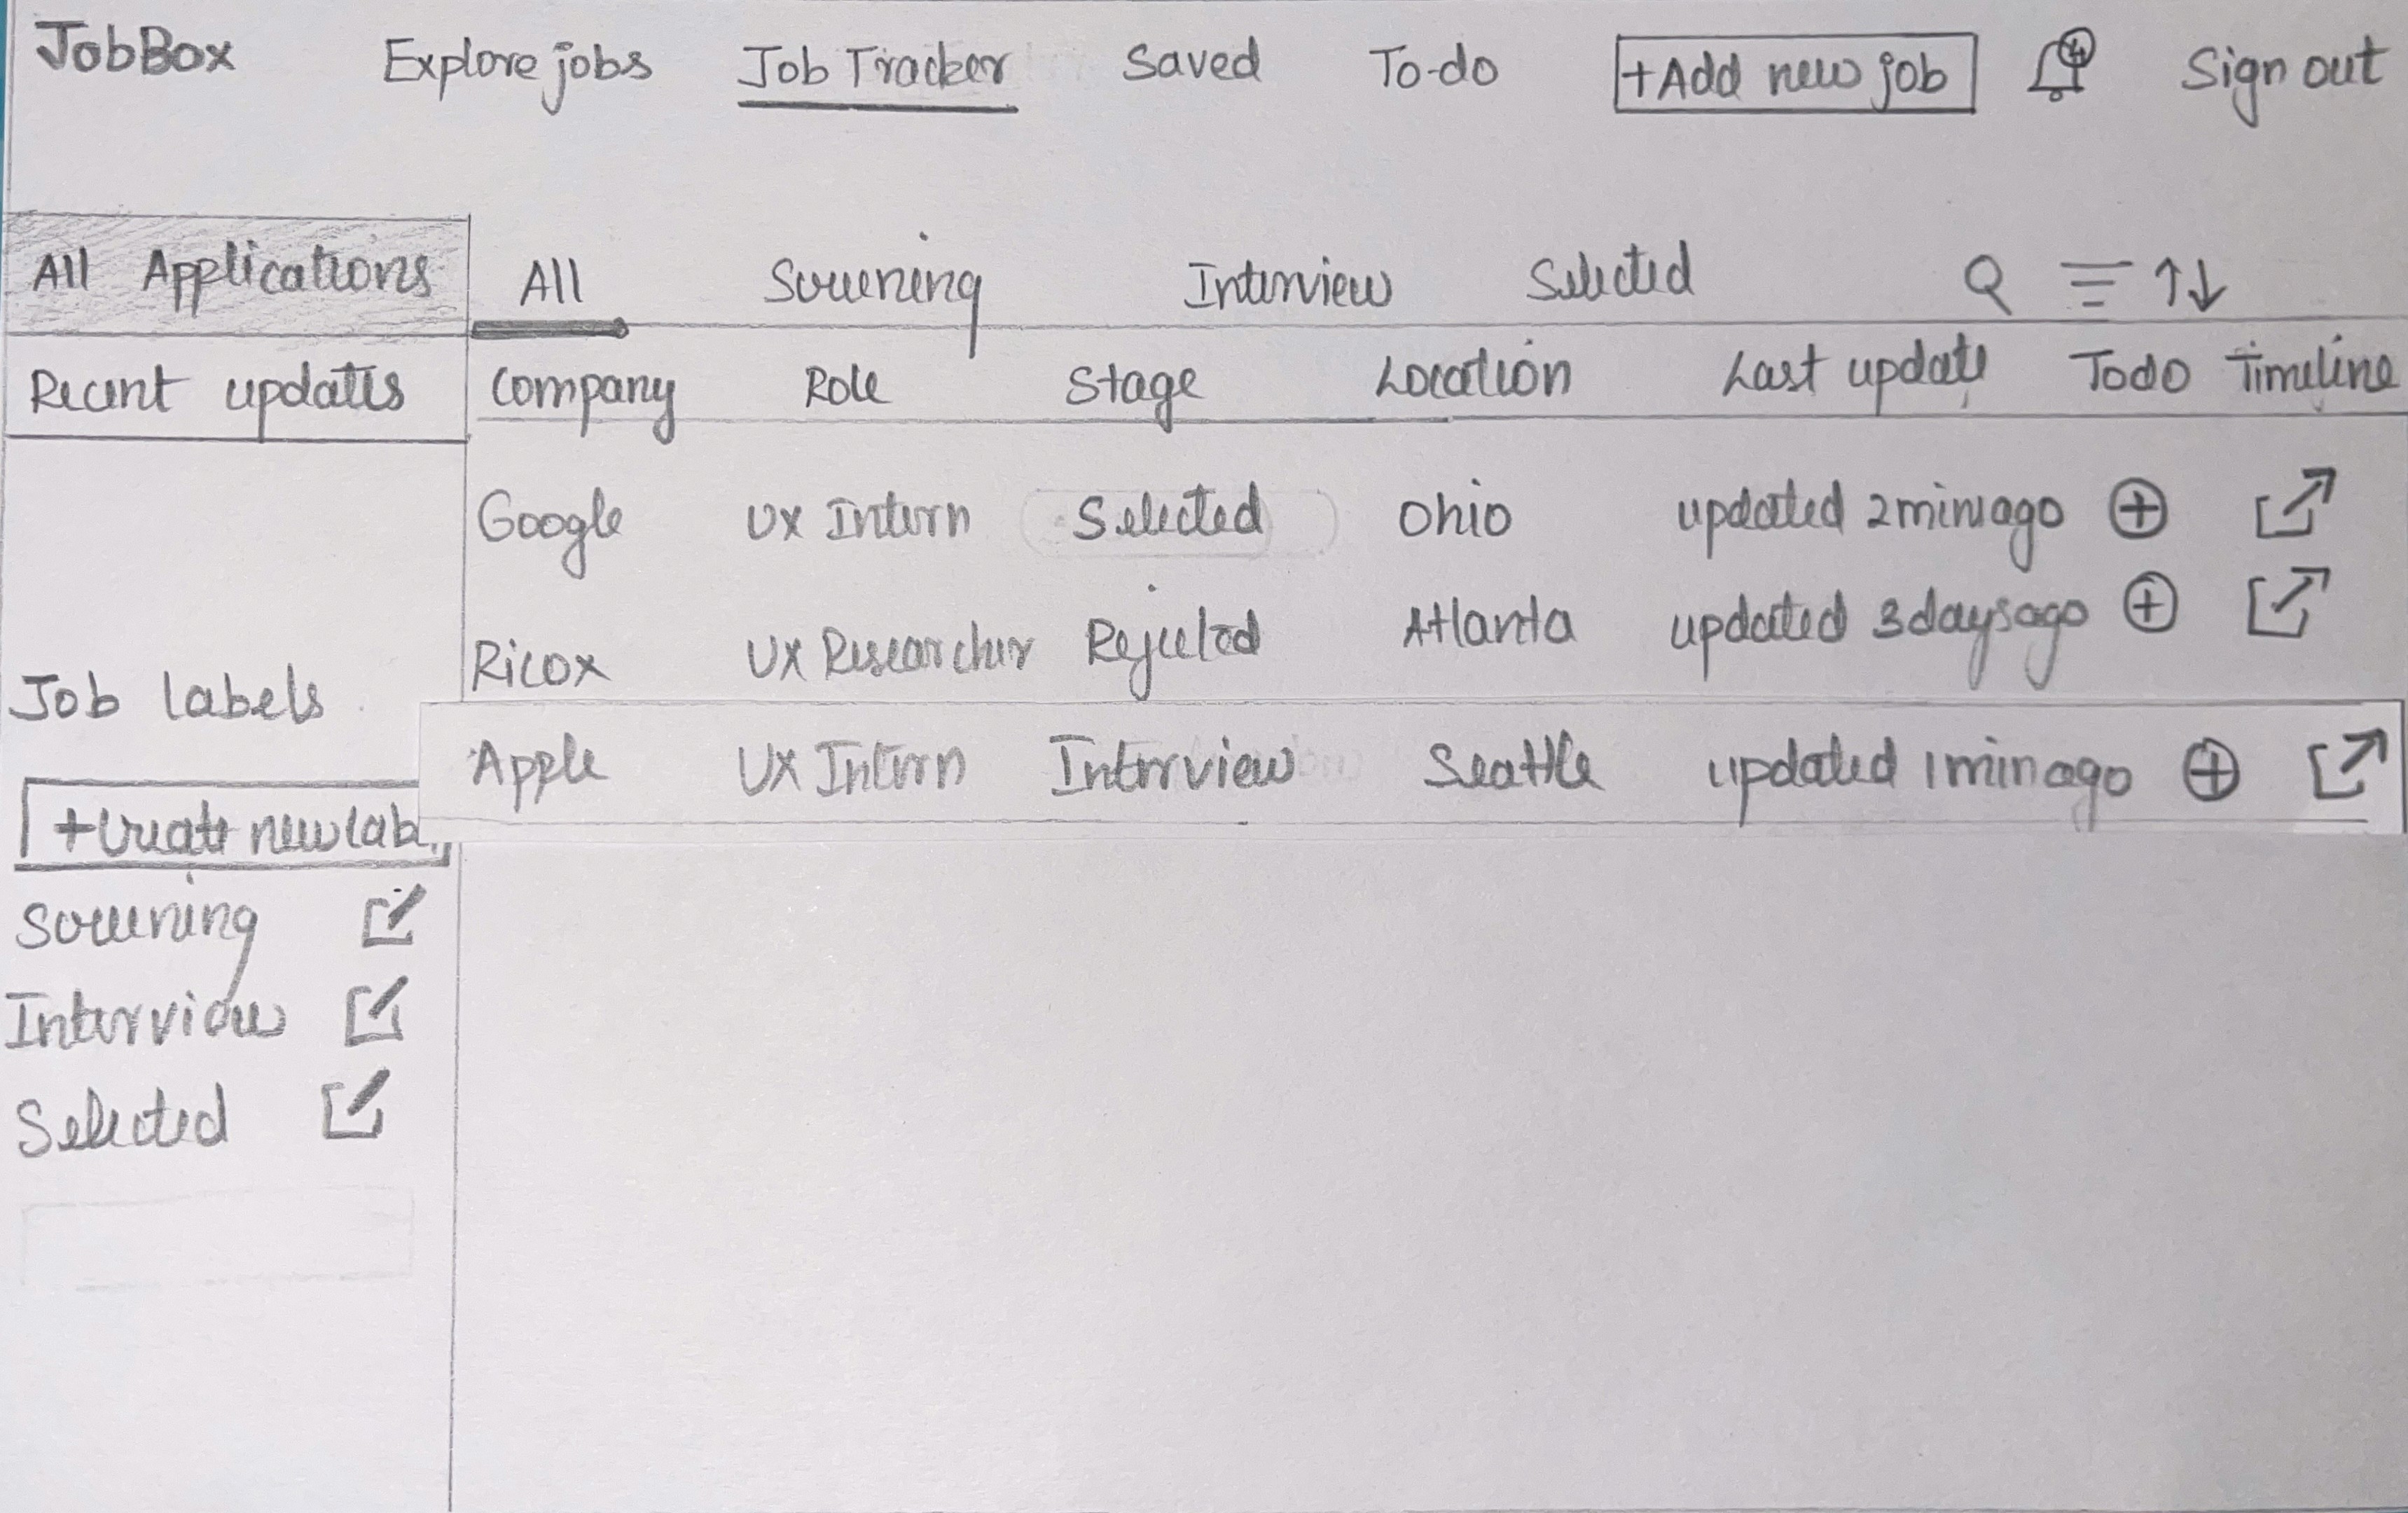 JobBox Explore jobs Job Tracker Saved To-do +Add new job 4 Sign out
All Applications All Screening Interview Selected
Recent updates Company Role Stage Location Last update Todo Timeline
Google UX Intern Selected Ohio updated 2 mins ago
Ricox UX Researcher Rejected Atlanta updated 3 days ago
Job labels
Apple UX Intern Interview Seattle updated 1 min ago
+Create new lab
Screening
Interview
Selected